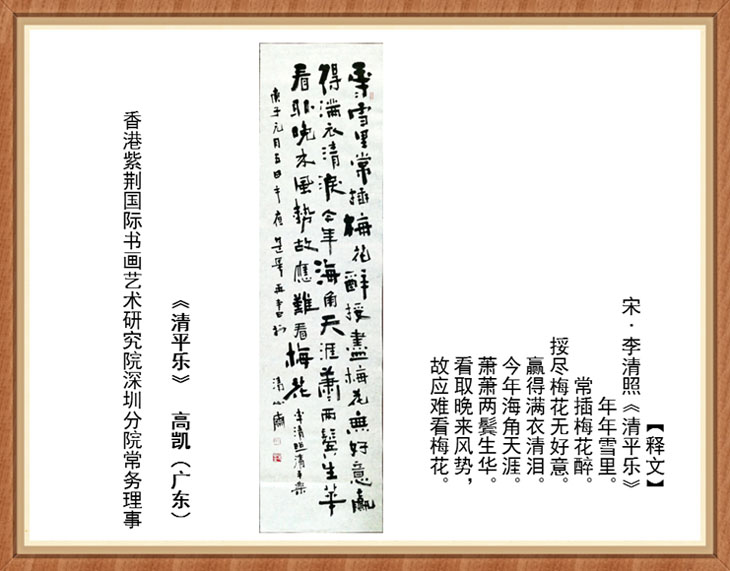 【释文】
宋·李清照《清平乐》
年年雪里。
常插梅花醉。
挼尽梅花无好意。
赢得满衣清泪。
今年海角天涯。
萧萧两鬓生华。
看取晚来风势，
故应难看梅花。
年々雪里常插梅花醉挼盡梅花無好意贏
得滿衣清淚今年海角天涯蕭々兩鬢生華
看取晚来風勢故應難看梅花 李清照清平樂
庚子元月五日
《清平乐》 高凯（广东）
香港紫荆国际书画艺术研究院深圳分院常务理事